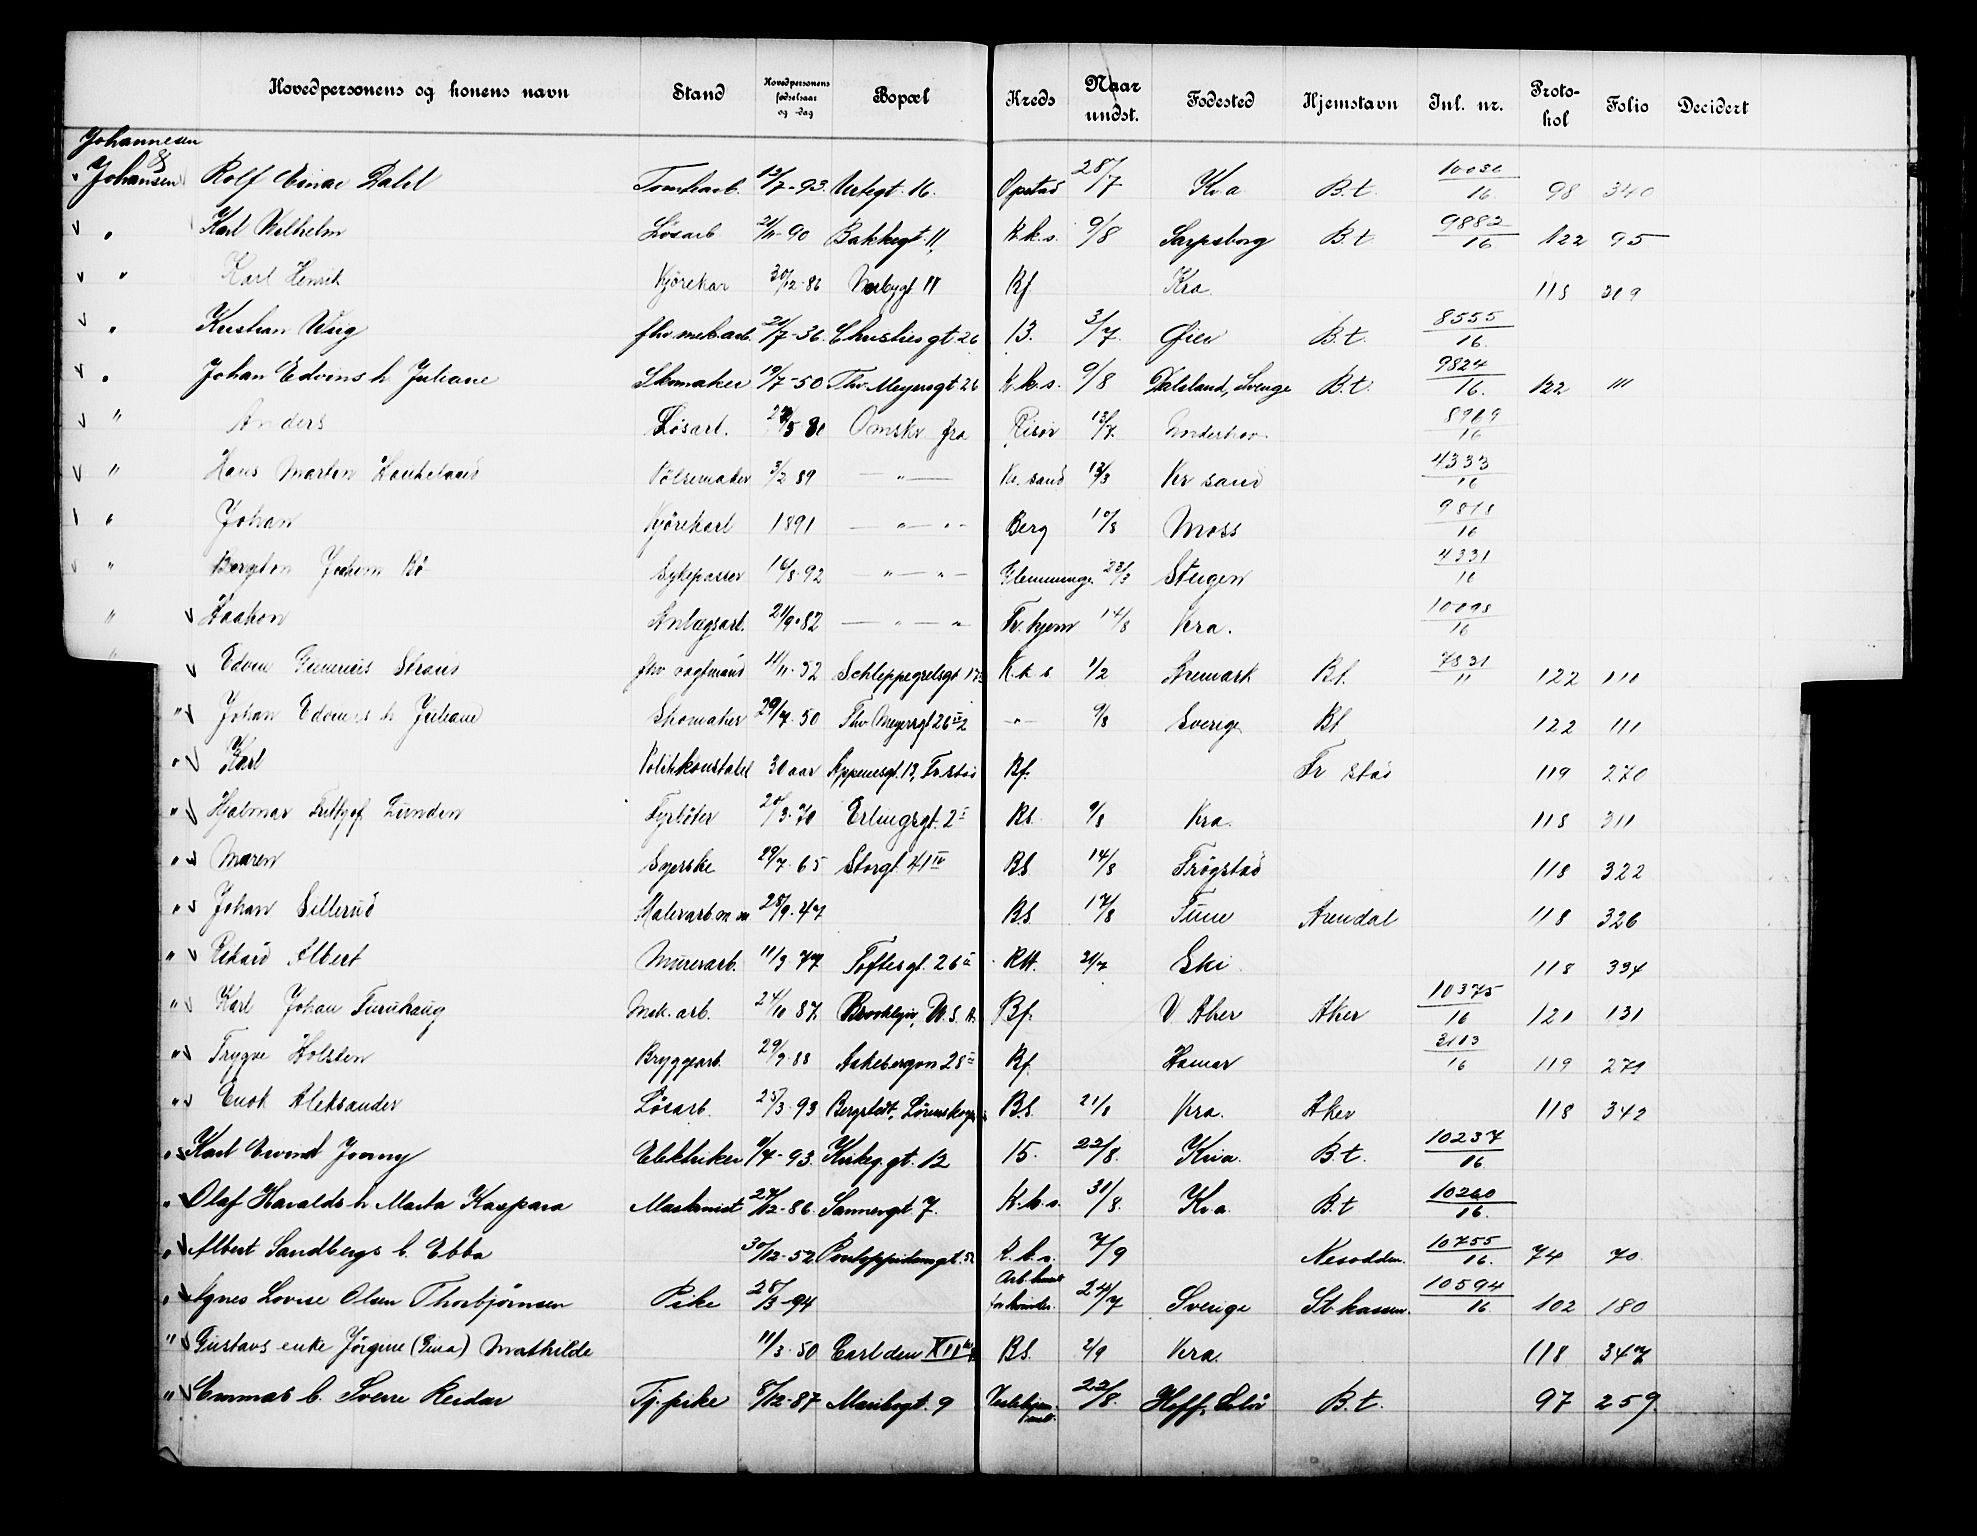 Hovedpersonens og konens navn Stand Hovedpersonens fødselsaar og -dag Bopæl Kreds Naar undst. Fødested Hjemstavn Inl. nr. Proto-kol Folio Decidert
Johannesen
&
Johansen Rolf Einar Dahl Tomtearb. 12/7-93. Vertsgt. 16. Opstad 28/7 Kr.a B.t. 10030/16 98 340
" Karl Wilhelm Løsarb 21/11-90 Bakkegt 11, K.k.s. 9/8 Sarpsborg B.t. 9882/16 122 95
" Karl Henrik Kjørekar 30/12-86 11 Kf Kra. 118 319
" Kristian fhv. mek.arb. 21/7-36. Christiesgt. 26 13. 3/7. Øier B.t. 8555/16.
" Johan Edvins h. Juliane Skomaker 19/7-50 Thv. Meyersgt 26 K.k.s. 9/8 Dalsland, Sverige B.t. 9824/16. 122 111
" Anders Løsarb. Omskr. fra Risør 13/7 8969/16
" Hans Marton Haukelaas Pølsemaker 3/2 89 — " — Kr. sand 13/3 Kr sand 4333/16
" Johan Kjørekarl 1891 — " — " — Berg 10/8 Moss 9818/16
" Bergton Jochem Bö Sykepasser 14/8-92 " — " — Glemminge 23/3 Steigen 4331/16
" Haakon Anlægsarb. 21/9-82 — " — " Fr. hjem 14/8 Kra. 10098/16
" Edvin Straus fhv vagtmand 11/11-52 Schleppegrelsgt 17 K.k s 1/2 Aremark Bt. 7831/11 122 110
" Johan Edvins h Juliane Skomaker 29/7-50 Thv Meyersgt 26 2 — " — 9/8 Sverige Bt 122 111
" Karl Politikonstabel 30 aar Fr.stad Kf. Fr stad 119 270
" Hjalmar Fritjof Lunden Fyrbøter 20/3-70 Erlingsgt. 2 I Ks. 9/8 Kra. 118 311
" Maren Syerske 29/7-65 Storgt. 41 IV Bs 14/8 Trøgstad 118 322
" Johan Sillerud Malerarb m m 28/9-47 Bs. 17/8 Tune Arendal 118 326
" Rikard Albert Murerarb. 11/3-77 Toftesgt. 26 II 21/7 Ski 118 334
" Karl Johan Furuhaug Mek. arb. 24/10 87. Brooklyn, U.S.A. Bf. V. Aker Aker 10375/16 121 131
" Trygve Holsten Bryggearb. 29/9-88 Aakebergvn 28 II Kf. Hamar 3103/16 119 279
" Enok Aleksander Løsarb. 25/3-93 Bergstedt, Lørenskogen Bs. 21/8 Kra. Aker 118 342
" Karl Eivind Jonny Elektriker 9/4-93. Kirkeg. gt. 12 15. 22/8. Kria. B.t. 10237/16
" Olaf Haralds h Marta Kaspara Maskinist 27/12-86. Sannergt 7. K.k.s. 31/8. Kr.a. B.t 10260/16.
" Albert Sandbergs b. Ebba 30/12-52 Pontoppidansgt. K.k.s. 7/9 Nesodden. 10755/16. 74 70
" Agnes Lovise Olsen Thorbjørnsen Pike 28/3-94 Arb.huset for kvinder. 24/7 Sverige St. kassen. 10594/16 102 180
" Gustavs enke Jørgine (Gina) Mathilde 11/3-50 Carl den XII Bs. 2/9 Kra. 118 347
" Emmas b. Sverre Reidar Tj. pike 8/12-87 Maribogt. 9 22/8. Hoff, Solør B.t. 97 259.